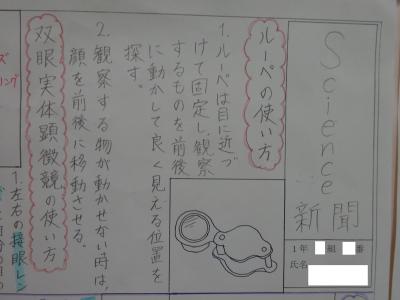 Science
新聞
1年 組 番
氏名
ルーペの使い方
1.ルーペは目に近づ
けて固定し、観察
するものを前後
に動かして良く見える位置を
探す。
2.観察する物が動かせない時は、
顔を前後に移動させる。
双眼実体顕微鏡の使い方
1.左右の接眼レン